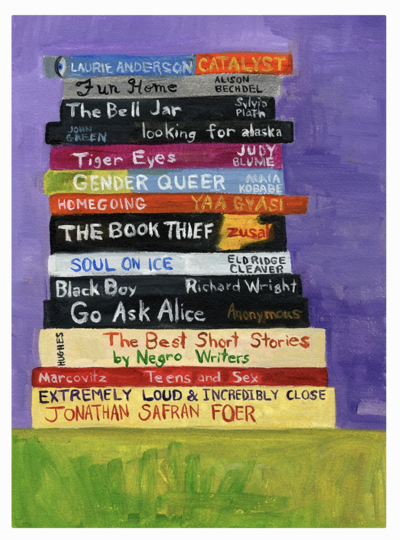 LAURIE ANDERSON CATALYST
Fun Home ALISON BECHDEL
The Bell Jar Sylvia Plath
JOHN GREEN looking for alaska
Tiger Eyes JUDY BLUME
GENDER QUEER MAIA KOBABE
HOMEGOING YAA GYASI
THE BOOK THIEF zusak
SOUL ON ICE ELDRIDGE CLEAVER
Black Boy Richard Wright
Go Ask Alice Anonymous
HUGHES The Best Short Stories
by Negro Writers
Marcovitz Teens and Sex
EXTREMELY LOUD & INCREDIBLY CLOSE
JONATHAN SAFRAN FOER